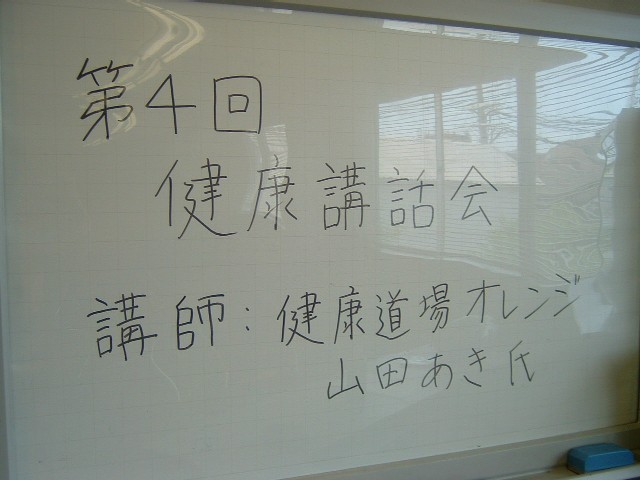 第4回
健康講話会
講師:健康道場オレンジ
山田あき氏